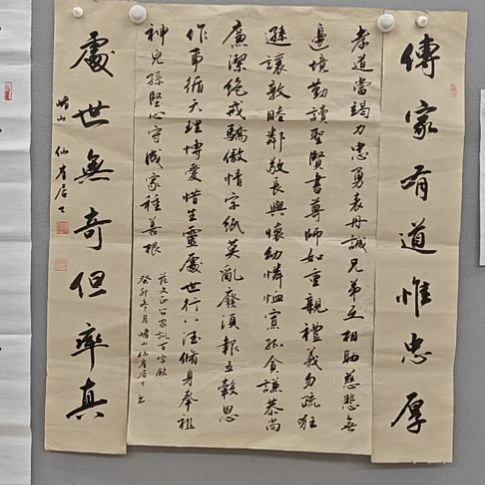 傳家有道惟忠厚
孝道當竭力忠勇表丹誠兄弟互相助慈悲無
邊境勤讀聖賢書尊師如重親禮義勿疏狂
遜讓敦睦鄰敬長與懷幼憐恤寡孤貧謙恭尚
廉潔絕戒驕傲情字紙莫亂廢須報五穀恩
作事循天理博愛惜生靈處世行八德修身奉祖
神兒孫堅心守成家種善根
范文正公家訓百字銘
癸卯冬月嶗山仙崖居士書
處世無奇但率真
嶗山仙崖居士